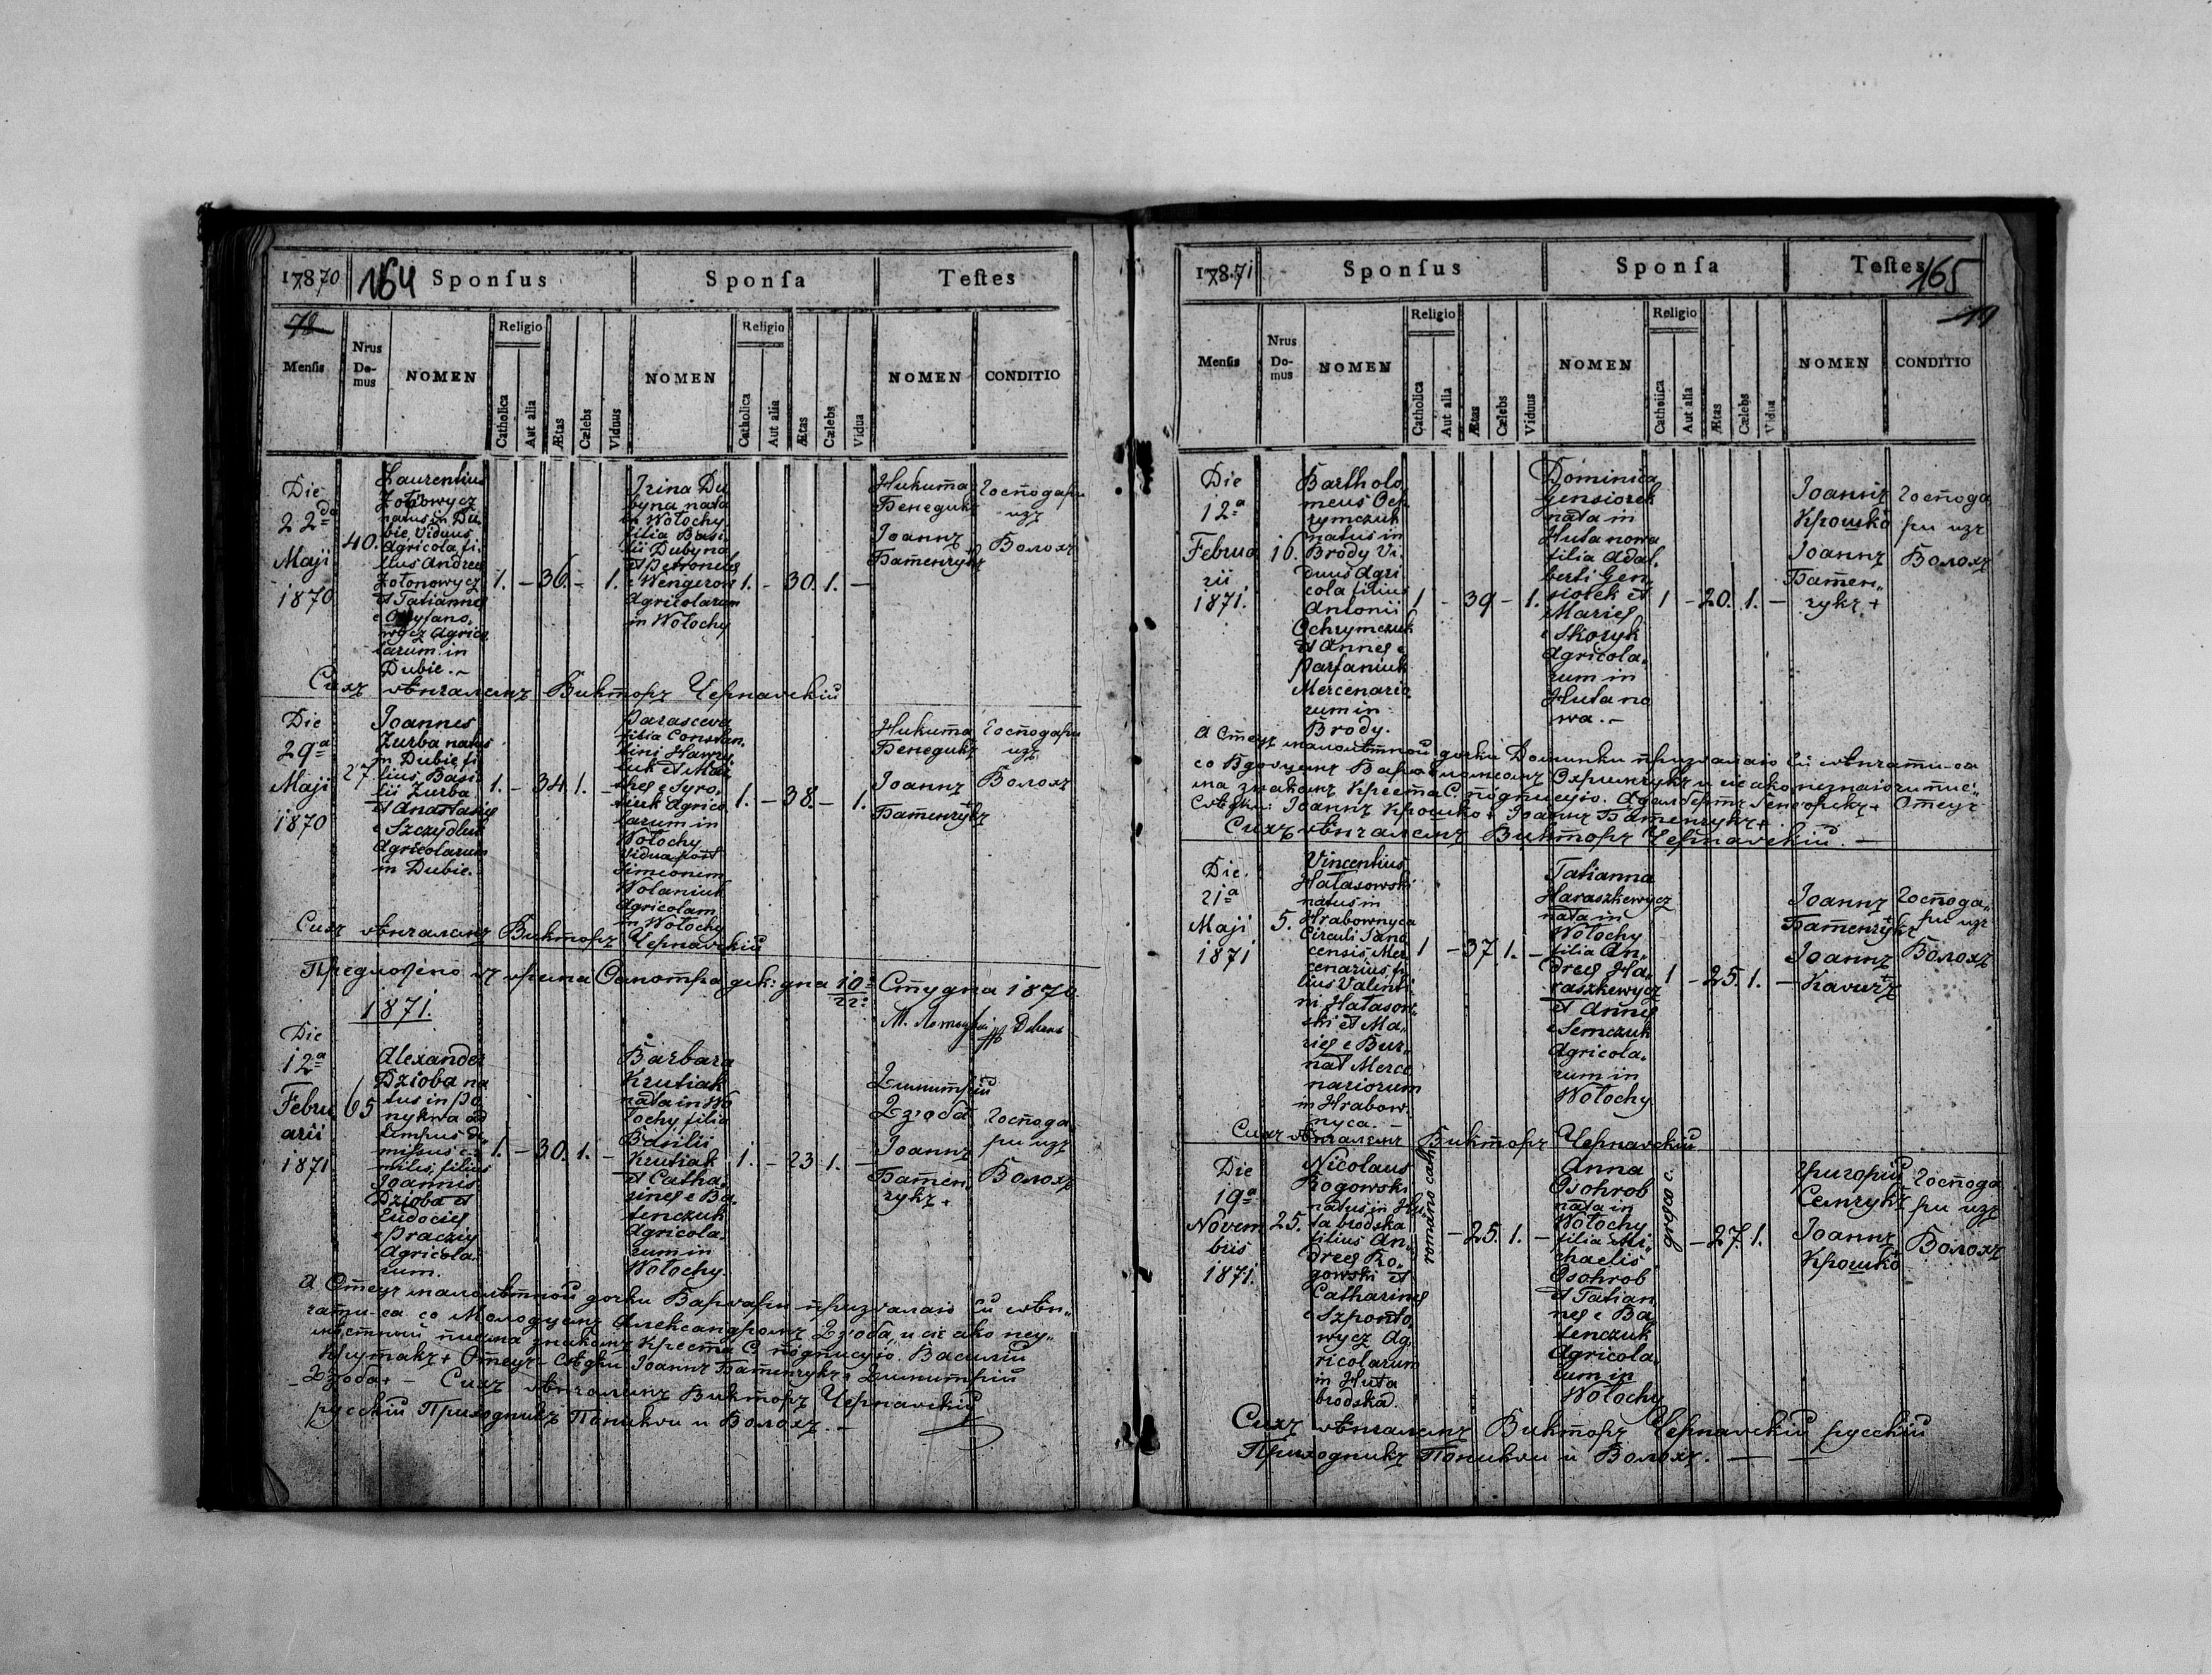 17870 164 Sponſus Sponſa Teſtes
78
Menſis Nrus Do-mus NOMEN Religio Catholica Aut alia Ætas Cælebs Viduus NOMEN Religio Catholica Aut alia Ætas Cælebs Vidua NOMEN CONDITIO
Die
22da
Maji
1870
40.
Laurentius
natus in Du
bie Viduus
Agricola fi„
lius Andreæ
Zołonowycz
et Tatiannæ
wycz Agrico
larum in
Dubie.–
1. – 36. – 1.
Irina Du
byna nata
in Wołochy
filia Basi
lii Dubyna
et Petronelæ
e Wengeron
Agricolarum
in Wołochy
1. – 30. 1. –
Никита
Бенедикъ
Іоаннъ
Батенчукъ
Господари
изъ
Волохъ
Сихъ вѣнчалемъ Викторъ Чернавскій
Die
29a
Maji
1870
27
Joannes
Zurba natus
in Dubie fi
lius Basi
lii Zurba
et Anastasiæ
e Szczydluk
Agricolarum
in Dubie.
1. – 34. 1. –
Parasceva
filia Constan
tini Hawry
luk et Ma
Agrico
larum in
Wołochy
Vidua post
Simeonem
Wolaniuk
Agricolam
in Wołochy
1. – 38. – 1.
Никита
Бенедикъ
Іоаннъ
Батенчукъ
Господари
изъ
Волохъ
Сихъ вѣнчалемъ Викторъ Чернавскій
Предложено дня 10/22 Студня 1870
1871.
Die
12a
Febru
arii
1871
65
Alexander
Dzioba na
tus in Po
nykwa ad
tempus di„
missus e. r.
miles, filius
Joannis
Dzioba et
Eudociæ
e Praczuy
Agricola„
rum.
1. – 30. 1. –
Barbara
Krutiak
nata in Wo
łochy filia
Basilii
Krutiak
et Catha„
rinæ e Ba„
tenczuk
Agricola„
rum in
Wołochy.
1. – 23 1. –
Димитрій
Дзюба
Іоаннъ
Батен„
чукъ +
Господа
ри изъ
Волохъ
Я Отецъ малолѣтной дочки Варвары призвалаю єй вѣн„
чати-ся со Молодцемъ Александромъ Дзюба, и сіе яко неу„
мѣтный писма знакомъ Креста С подписую. Василій
Крутякъ + Отецъ – Свѣдки Іоаннъ Батенчукъ + Димитрій
Дзюба + – Сихъ вѣнчалемъ Викторъ Чернавскій
русскій Приходникъ Пониквы и Волохъ. –
178.71 Sponſus Sponſa Teſtes 165
Menſis Nrus Do-mus NOMEN Religio Catholica Aut alia Ætas Cælebs Viduus NOMEN Religio Catholica Aut alia Ætas Cælebs Vidua NOMEN CONDITIO
Die
12a
Februa
rii
1871.
16.
Bartholo
meus Och
rymczuk
natus in
Brody Vi„
duus Agri
cola filius
Antonii
Ochrymczuk
et Annæ e
Parfaniuk
Mercenario
rum in
Brody.
1 – 39 – 1.
Dominica
Gensiorek
nata in
Huta nowa
filia Adal„
berti Gen„
siorek et
Mariæ
e Skoryk
Agricola„
rum in
Huta no
wa.–
1 – 20. 1. –
Іоаннъ
Крошко
Іоаннъ
Батен„
чукъ +
Господа
ри изъ
Волохъ
Я Отецъ малолѣтной дочки Доминики призвалаю єй вѣнчати-ся
со Вдовцемъ Варѳоломеомъ Охримчукъ и сіе яко незнаючи пис„
ма знакомъ Креста С подписую. Адалбертъ Генсіорикъ + Отецъ
Свѣдки: Іоаннъ Крошко + Іоаннъ Батенчукъ +
Сихъ вѣнчалемъ Викторъ Чернавскій. –
Die
21a
Maji
1871
5.
Vincentius
Hałasowski
natus in
Hrabownyca
Circuli Sano
censis, Mer
cenarius, fi
lius Valenti
ni Hałasow„
ski et Ma„
riæ e Bur„
nat Merce
nariorum
in Hrabow„
nyca. –
1 – 37 1. –
Tatianna
Haraszkewycz
nata in
Wołochy
filia An„
dreæ Ha„
raszkewycz
et Annæ
e Semczuk
Agricola„
rum in
Wołochy
1 – 25. 1. –
Іоаннъ
Батенчукъ
Іоаннъ
Господа„
ри изъ
Волохъ
Сихъ вѣнчалемъ Викторъ Чернавскій
Die
19a
Novem
bris
1871.
25.
Nicolaus
Rogowski
natus in Hu„
ta brodska
filius An„
dreæ Ro„
gowski et
Catharinæ
e Szponto„
wycz Ag„
ricolarum
in Huta
brodska.
romano cath
– 25. 1. –
Anna
Osohrob
nata in
Wołochy
filia Mi„
chaelis
Osohrob
et Tatian„
næ e Ba„
tenczuk
Agricola„
rum in
Wołochy
græco c.
– 27. 1.
Григорій
Семчукъ
Іоаннъ
Крошко
Господа
ри изъ
Волохъ
Сихъ вѣнчалемъ Викторъ Чернавскій русскій
Приходникъ Пониквы и Волохъ. — —